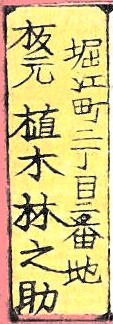 堀江町二丁目三番地
板元 植木林之助